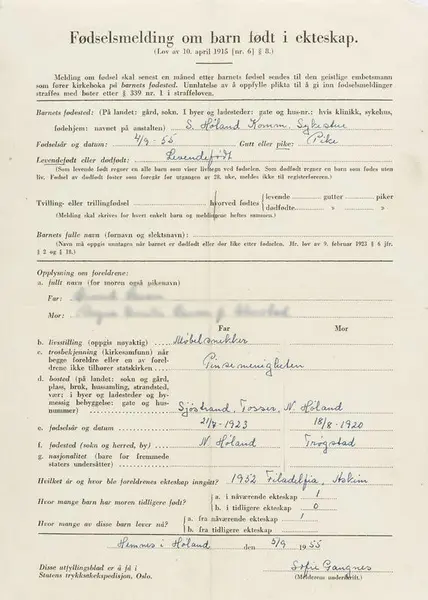 Fødselsmelding om barn født i ekteskap.
(Lov av 10. april 1915 [nr. 6] § 8.)
Melding om fødsel skal senest en måned etter barnets fødsel sendes til den geistlige embetsmann
som fører kirkeboka på barnets fødested. Unnlatelse av å oppfylle plikta til å gi inn fødselsmelding
straffes med bøter etter § 339 nr. 1 i straffeloven.
Barnets fødested: (På landet: gård, sokn. I byer og ladesteder: gate og hus-nr.; hvis klinikk, sykehus,
fødehjem: navnet på anstalten) S. Høland Komm. Sykestue
Fødselsår og datum 4/9-55 Gutt eller pike: Pike
Levendefødt eller dødfødt: Levendefødt
(Som levende født regner en alle barn som viser livstegn ved fødselen. Som dødfødt regner en barn som fødes uten
liv. Fødsel av dødfødt foster som foregår før utgangen av 28. uke, meldes ikke til registerføreren.)
Tvilling- eller trillingfødsel hvorved fødtes levende gutter piker
dødfødte » »
(Melding skal skrives for hvert enkelt barn og meldingene heftes sammen.)
Barnets fulle navn (fornavn og slektsnavn):
(Navn må oppgis unntagen når barnet er dødfødt eller dør like etter fødselen. Jfr. lov av 9. februar 1923 § 6 jfr.
§ 2 og § 18.)
Opplysning om foreldrene:
a. fullt navn (for moren også pikenavn)
Far:
Mor:
Far Mor
b. livsstilling (oppgis nøyaktig) Møbelsnekker
c. trosbekjenning (kirkesamfunn) når
begge foreldre eller en av forel-
drene ikke tilhører statskirken Pinsemenigheten
d. bosted (på landet: sokn og gård,
plass, bruk, hussamling, strandsted,
vær; i byer og ladesteder og by-
messig bebyggelse: gate og hus-
nummer) Sjöstrand, Fosser, N. Höland
e. fødselsår og datum 21/7-1923 18/8-1920
f. fødested (sokn og herred, by) N. Høland Trøgstad
g. nasjonalitet (bare for fremmede
staters undersåtter)
Hvilket år og hvor ble foreldrenes ekteskap inngått? 1952 Filadelfia, Askim
Hvor mange barn har moren tidligere født? a. i nåværende ekteskap 1
b. i tidligere ekteskap 0
Hvor mange av disse barn lever nå? a. fra nåværende ekteskap 1
b. fra tidligere ekteskap
Hemnes i Høland den 5/9 1955
Disse utfyllingsblad er å få i
Statens trykksakekspedisjon, Oslo.
Sofie Gangnes
(Melderens underskrift.)